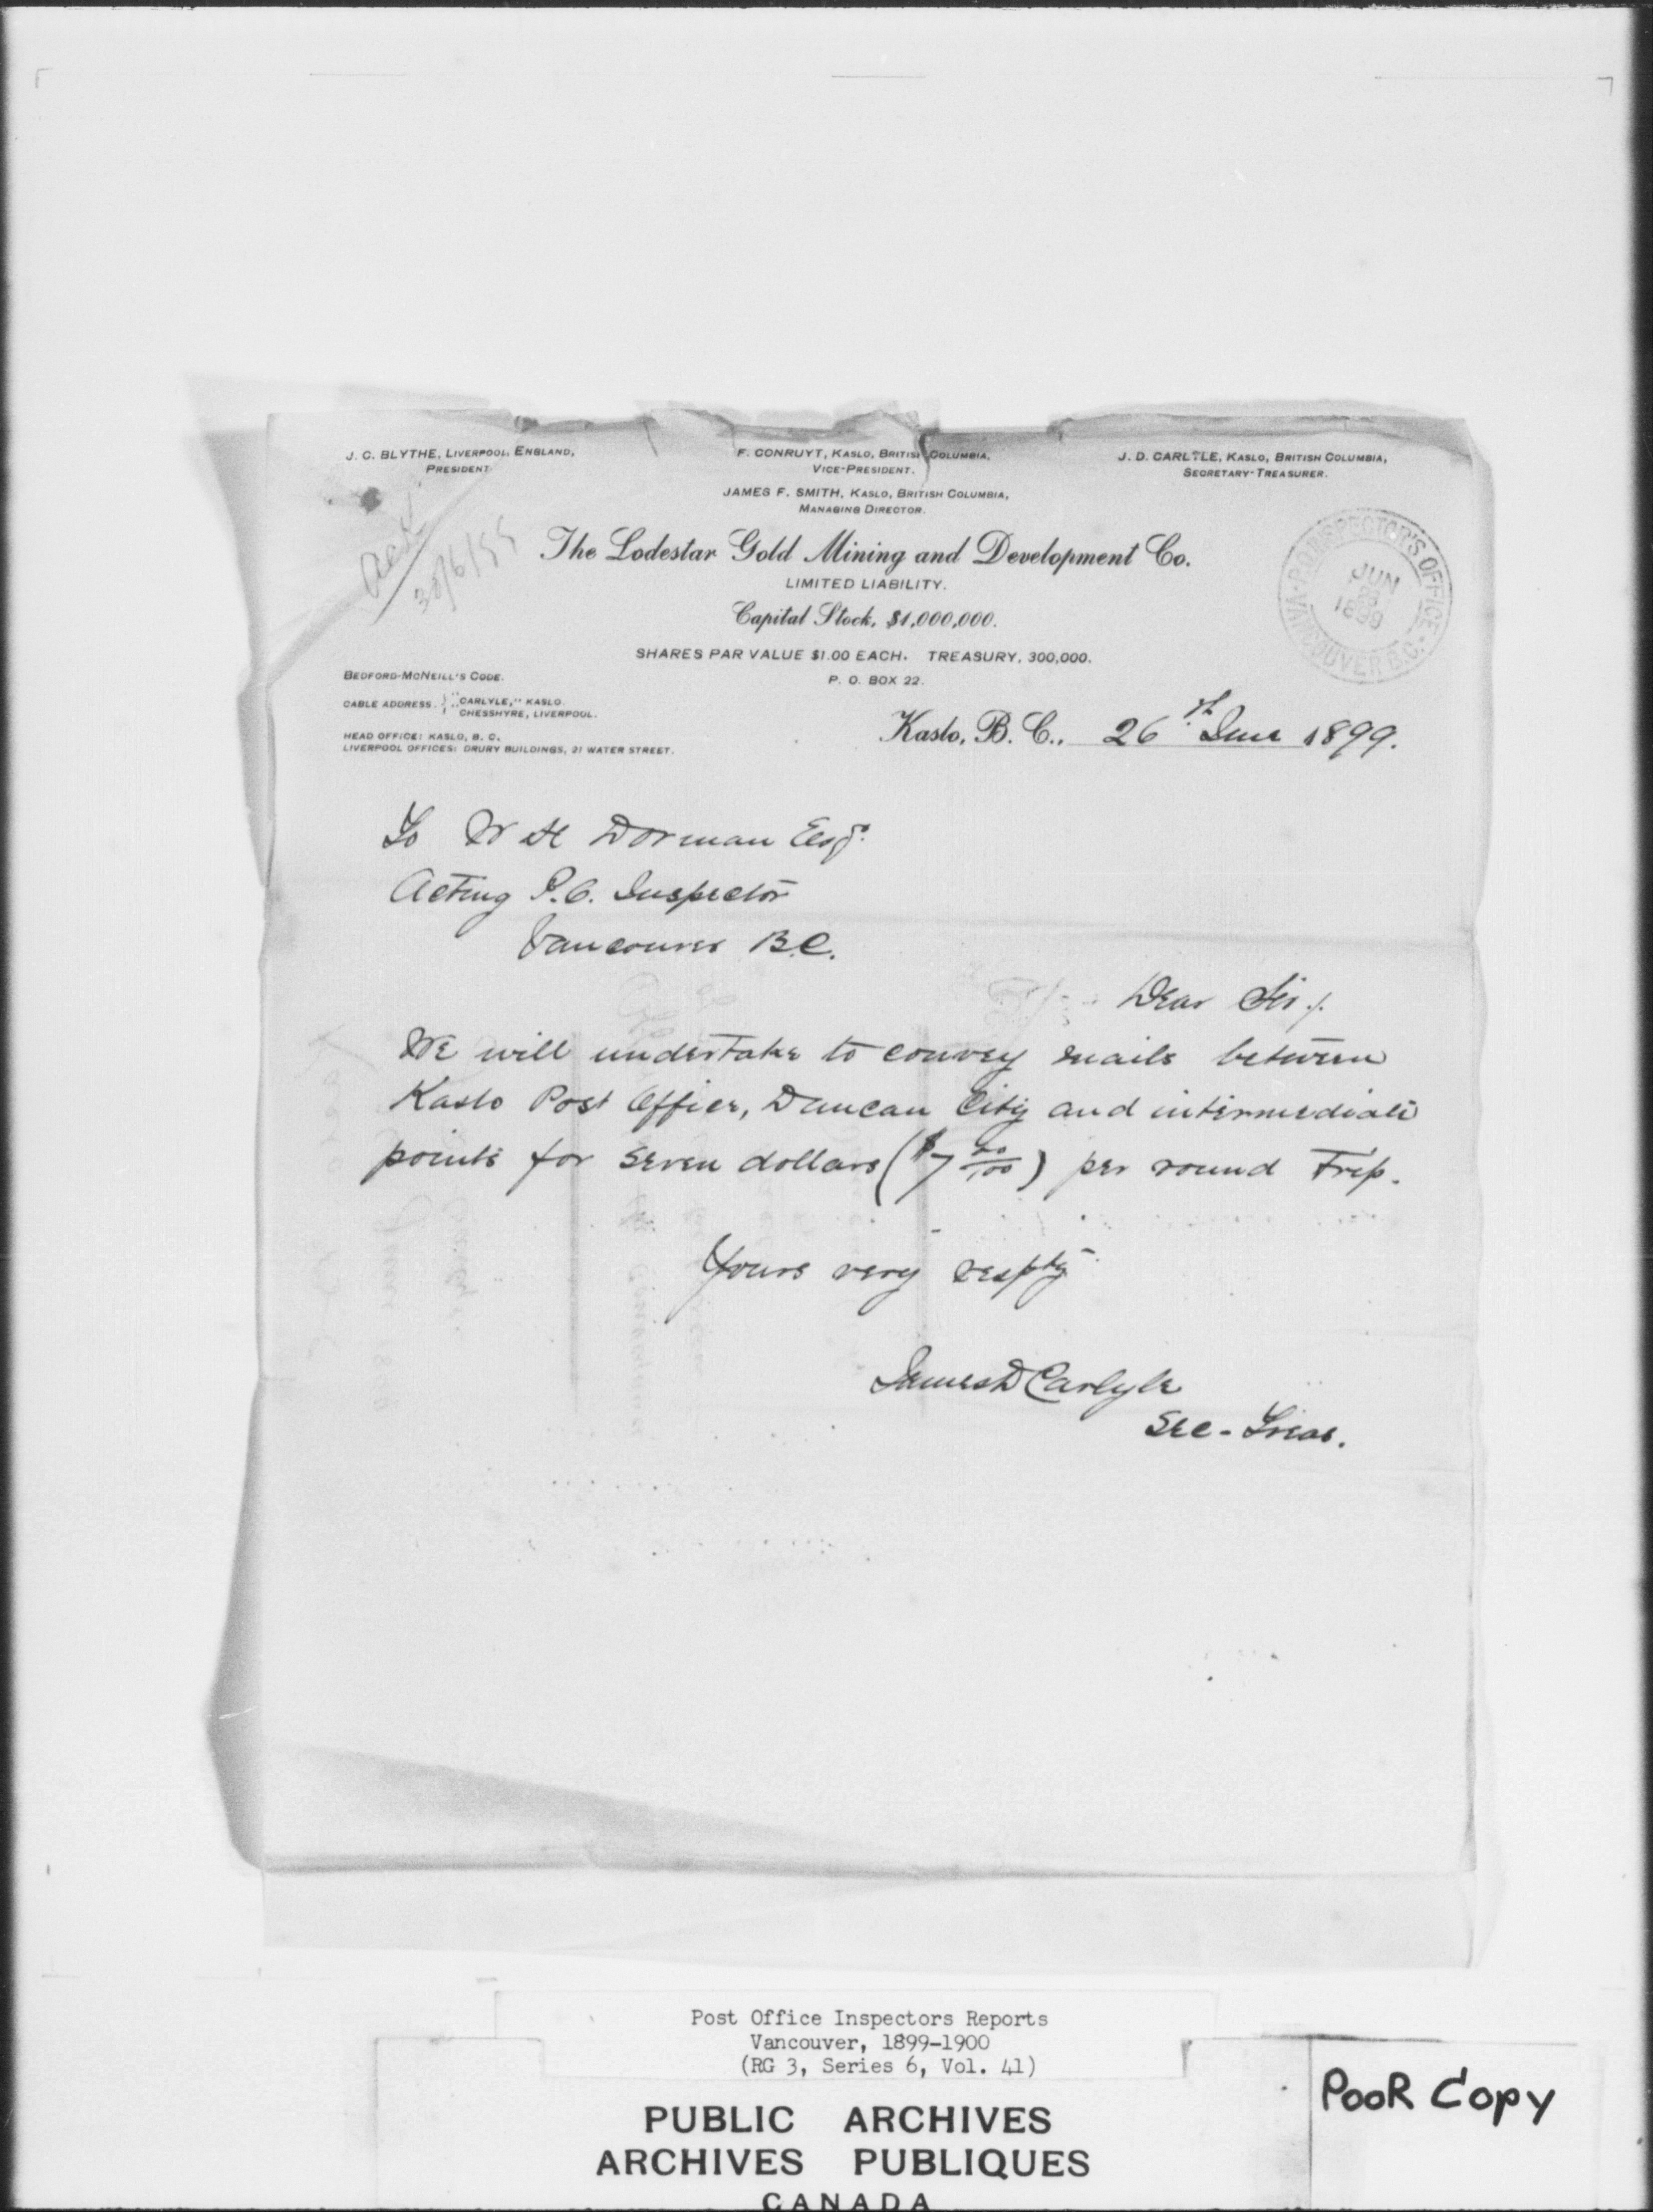 J. C. BLYTHE, LIVERPOOL, ENGLAND,
PRESIDENT.
F. CONRUYT, KASLO, BRITISH COLUMBIA,
VICE-PRESIDENT.
J. D. CARLYLE, KASLO, BRITISH COLUMBIA,
SECRETARY-TREASURER.
JAMES F. SMITH, KASLO, BRITISH COLUMBIA,
MANAGING DIRECTOR.
Ack
30/6/99
The Lodestar Gold Mining and Development Co.
LIMITED LIABILITY.
Capital Stock, $1,000,000.
SHARES PAR VALUE $1.00 EACH. TREASURY, 300,000.
P. O. BOX 22.
P.O. INSPECTOR'S OFFICE
JUN
1899
VANCOUVER B.C.
BEDFORD-MCNEILL'S CODE.
CABLE ADDRESS. } "CARLYLE," KASLO.
CHESSHYRE, LIVERPOOL.
HEAD OFFICE: KASLO, B. C.
LIVERPOOL OFFICES: DRURY BUILDINGS, 21 WATER STREET.
Kaslo, B. C., 26th June 1899.
To W H Dorman Esqr.
Acting P.O. Inspector
Vancouver B.C.
Dear Sir/.
We will undertake to convey mails between
Kaslo Post Office, Duncan City and intermediate
points for seven dollars ($7 00/100) per round Trip.
Yours very respty
James D Carlyle
Sec-Treas.
Post Office Inspectors Reports
Vancouver, 1899-1900
(RG 3, Series 6, Vol. 41)
PUBLIC ARCHIVES
ARCHIVES PUBLIQUES
CANADA
POOR COPY